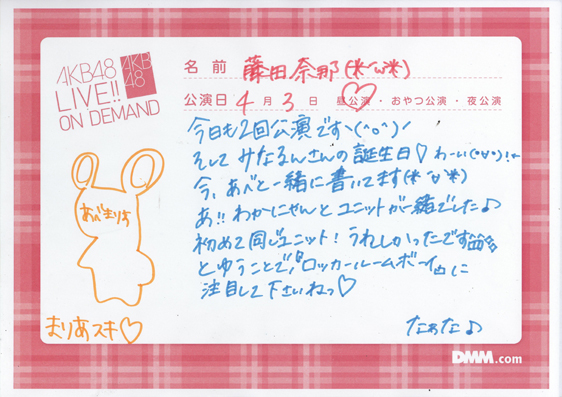 AKB48
LIVE!!
ON DEMAND
AKB
48
名前 藤田奈那(*'ω'*)
公演日 4月3日 昼公演・おやつ公演・夜公演
今日も2回公演ですヽ(^o^)ノ
そして みなるんさんの誕生日♡ わーい(°∀°)!
今、あべと一緒に書いてます(*'∀'*)
あ!! わかにゃんと ユニットが一緒でした♪
初めて同じユニット! うれしかったです
とゆうことで、『ロッカールームボーイ』に
注目して下さいねっ♡
なぁな♪
あべまりあ
まりあスキ♡
DMM.com